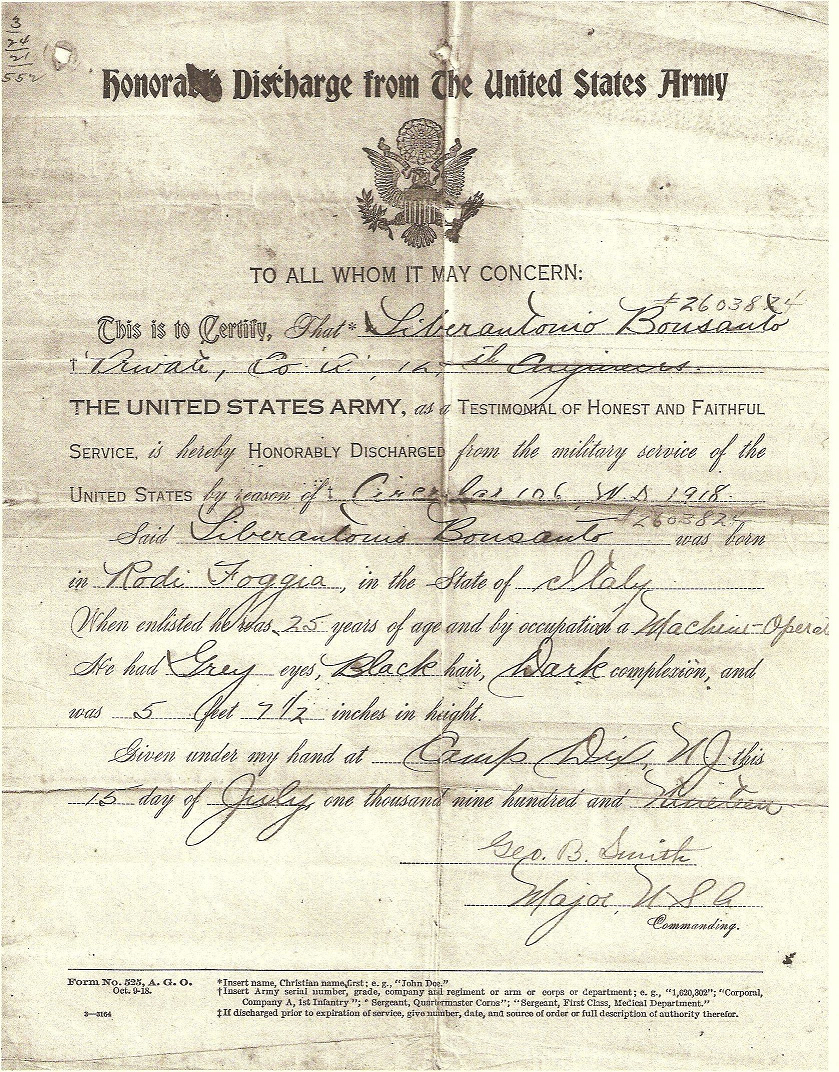 3
24
21
552
Honorable Discharge from The United States Army
TO ALL WHOM IT MAY CONCERN:
#2603824
This is to Certify, That* Liberantonio Bonsanto
† Private, Co "  ", 12, th Engineers.
THE UNITED STATES ARMY, as a TESTIMONIAL OF HONEST AND FAITHFUL
SERVICE, is hereby HONORABLY DISCHARGED from the military service of the
UNITED STATES by reason of‡ Circular 106, W.D. 1918.
#2603824
Said Liberantonio Bonsanto was born
in Rodi Foggia, in the State of Italy
When enlisted he was 25 years of age and by occupation a Machine-Opera
He had Grey eyes, Black hair, Dark complexion, and
was 5 feet 7 1/2 inches in height.
Given under my hand at Camp Dix, NJ this
15 day of July, one thousand nine hundred and Nineteen
Geo. B. Smith
Major, U S A
Commanding.
Form No. 525, A. G. O.
Oct. 9-18.
3—3164
*Insert name, Christian name, first; e. g., "John Doe."
†Insert Army serial number, grade, company and regiment or arm or corps or department; e. g., "1,620,302"; "Corporal,
Company A, 1st Infantry"; "Sergeant, Quartermaster Corps"; "Sergeant, First Class, Medical Department."
‡If discharged prior to expiration of service, give number, date, and source of order or full description of authority therefor.